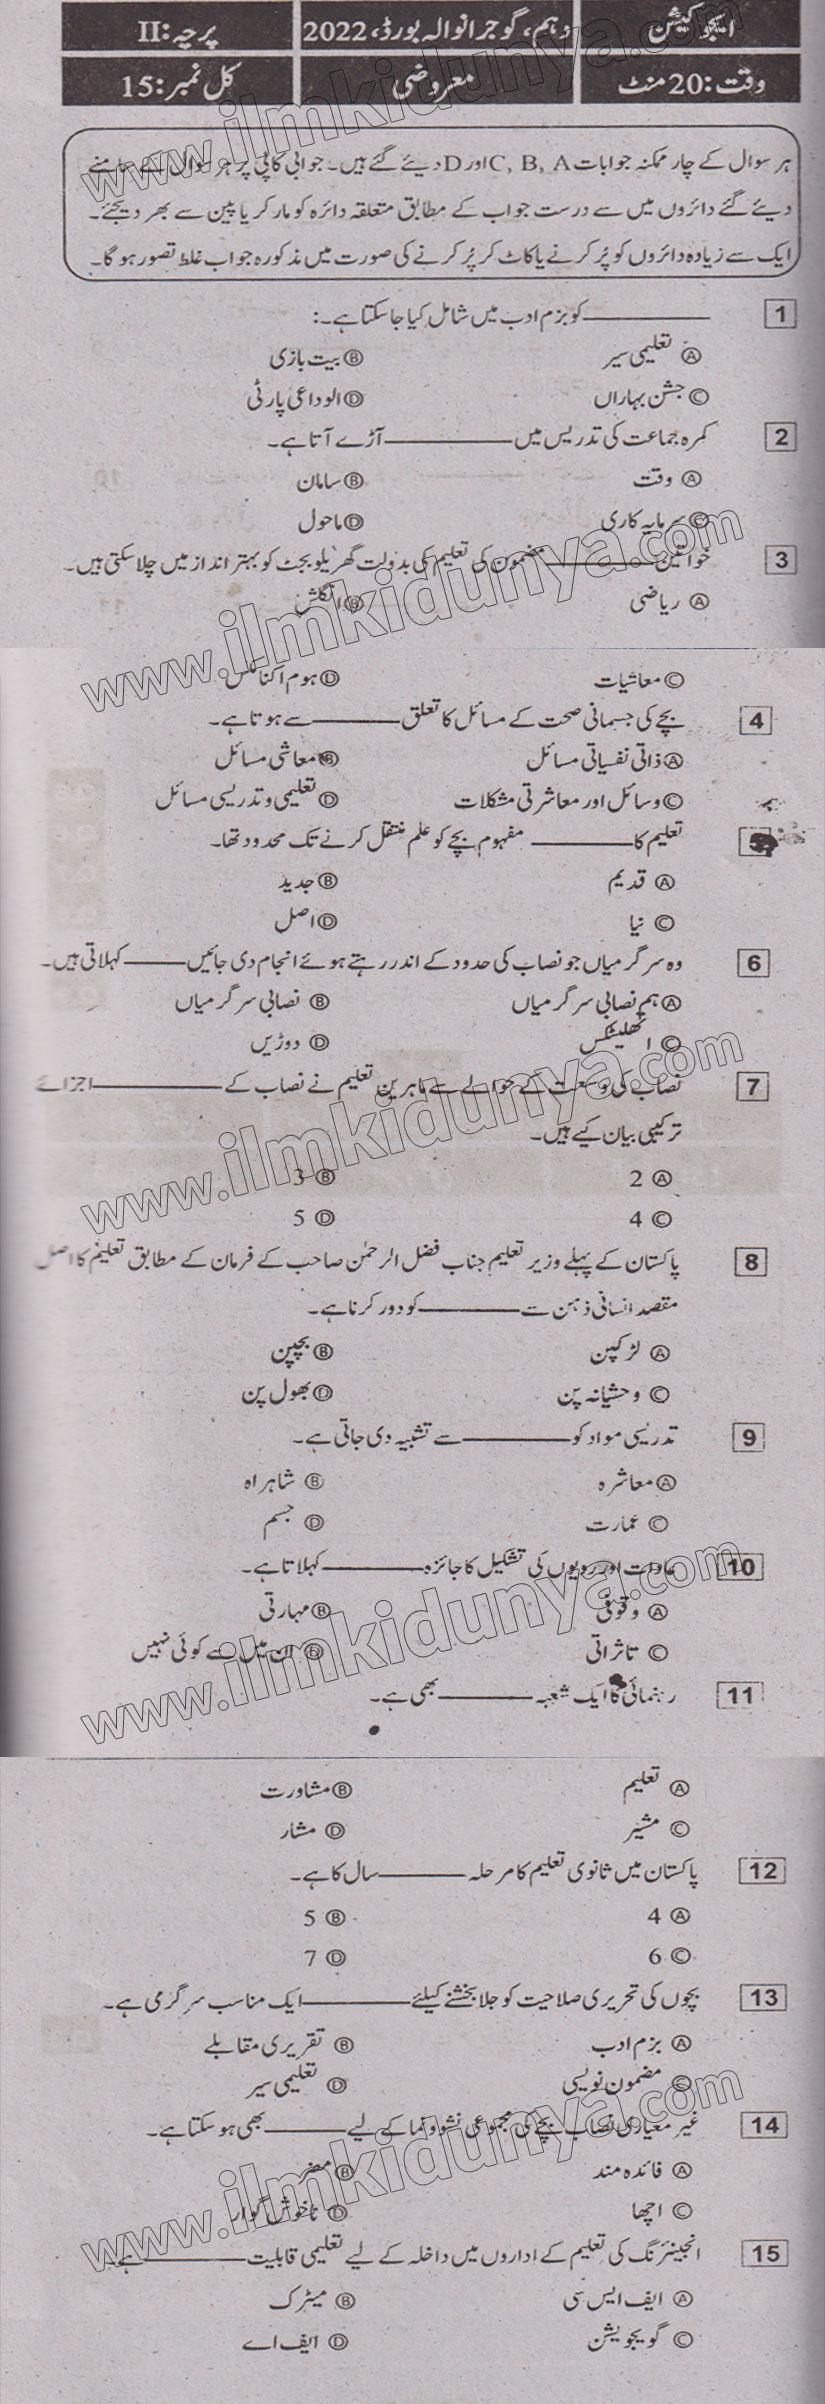 ایجوکیشن دہم، گوجرانوالہ بورڈ، 2022 پرچہ: II
وقت: 20 منٹ معروضی کل نمبر: 15
ہر سوال کے چار ممکنہ جوابات C, B, A اور D دیئے گئے ہیں۔ جوابی کاپی پر ہر سوال کے سامنے
دیئے گئے دائروں میں سے درست جواب کے مطابق متعلقہ دائرہ کو مارکر یا پین سے بھر دیجئے۔
ایک سے زیادہ دائروں کو پُر کرنے یا کاٹ کر پُر کرنے کی صورت میں مذکورہ جواب غلط تصور ہوگا۔
1 ______ کو بزم ادب میں شامل کیا جا سکتا ہے۔:
Ⓐ تعلیمی سیر Ⓑ بیت بازی
Ⓒ جشن بہاراں Ⓓ الوداعی پارٹی
2 کمرہ جماعت کی تدریس میں ______ آڑے آتا ہے۔
Ⓐ وقت Ⓑ سامان
Ⓒ سرمایہ کاری Ⓓ ماحول
3 خواتین ______ مضمون کی تعلیم کی بدولت گھریلو بجٹ کو بہتر انداز میں چلا سکتی ہیں۔
Ⓐ ریاضی Ⓑ انگلش
Ⓒ معاشیات Ⓓ ہوم اکنامکس
4 بچے کی جسمانی صحت کے مسائل کا تعلق ______ سے ہوتا ہے۔
Ⓐ ذاتی نفسیاتی مسائل Ⓑ معاشی مسائل
Ⓒ وسائل اور معاشرتی مشکلات Ⓓ تعلیمی و تدریسی مسائل
5 تعلیم کا ______ مفہوم بچے کو علم منتقل کرنے تک محدود تھا۔
Ⓐ قدیم Ⓑ جدید
Ⓒ نیا Ⓓ اصل
6 وہ سرگرمیاں جو نصاب کی حدود کے اندر رہتے ہوئے انجام دی جائیں ______ کہلاتی ہیں۔
Ⓐ ہم نصابی سرگرمیاں Ⓑ نصابی سرگرمیاں
Ⓒ اتھلیٹکس Ⓓ دوڑیں
7 نصاب کی وسعت کے حوالے سے ماہرین تعلیم نے نصاب کے ______ اجزائے
ترکیبی بیان کیے ہیں۔
Ⓐ 2 Ⓑ 3
Ⓒ 4 Ⓓ 5
8 پاکستان کے پہلے وزیر تعلیم جناب فضل الرحمٰن صاحب کے فرمان کے مطابق تعلیم کا اصل
مقصد انسانی ذہن سے ______ کو دور کرنا ہے۔
Ⓐ لڑکپن Ⓑ بچپن
Ⓒ وحشیانہ پن Ⓓ بھول پن
9 تدریسی مواد کو ______ سے تشبیہ دی جاتی ہے۔
Ⓐ معاشرہ Ⓑ شاہراہ
Ⓒ عمارت Ⓓ جسم
10 عادات اور رویوں کی تشکیل کا جائزہ ______ کہلاتا ہے۔
Ⓐ وقوفی Ⓑ مہارتی
Ⓒ تاثراتی Ⓓ ان میں سے کوئی نہیں
11 رہنمائی کا ایک شعبہ ______ بھی ہے۔
Ⓐ تعلیم Ⓑ مشاورت
Ⓒ مشیر Ⓓ مشار
12 پاکستان میں ثانوی تعلیم کا مرحلہ ______ سال کا ہے۔
Ⓐ 4 Ⓑ 5
Ⓒ 6 Ⓓ 7
13 بچوں کی تحریری صلاحیت کو جلا بخشنے کیلئے ______ ایک مناسب سرگرمی ہے۔
Ⓐ بزم ادب Ⓑ تقریری مقابلے
Ⓒ مضمون نویسی Ⓓ تعلیمی سیر
14 غیر معیاری نصاب بچے کی مجموعی نشوونما کے لیے ______ بھی ہو سکتا ہے۔
Ⓐ فائدہ مند Ⓑ مضر
Ⓒ اچھا Ⓓ ناخوش گوار
15 انجینئرنگ کی تعلیم کے اداروں میں داخلہ کے لیے تعلیمی قابلیت ______ ہے۔
Ⓐ ایف ایس سی Ⓑ میٹرک
Ⓒ گریجویشن Ⓓ ایف اے
www.ilmkidunya.com
www.ilmkidunya.com
www.ilmkidunya.com
www.ilmkidunya.com
www.ilmkidunya.com